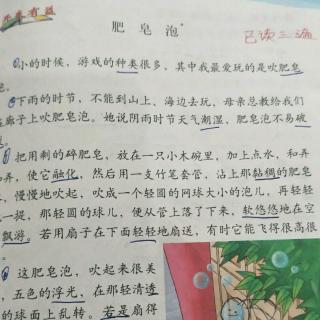 开卷有益
肥皂泡*
已读三遍
①小的时候，游戏的种类很多，其中我最爱玩的是吹肥皂
泡。
②下雨的时节，不能到山上、海边去玩，母亲总教给我们
在廊子上吹肥皂泡。她说阴雨时节天气潮湿，肥皂泡不易破
把用剩的碎肥皂，放在一只小木碗里，加上点水，和弄
和弄，使它融化，然后用一支竹笔套管，沾上那黏稠的肥皂
慢慢地吹起，吹成一个轻圆的网球大小的泡儿，再轻轻
一提，那轻圆的球儿，便从管上落了下来，软悠悠地在空
飘游。若用扇子在下面轻轻地扇送，有时它能飞得很高很
这肥皂泡，吹起来很美
五色的浮光，在那轻清透
的球面上乱转。若是扇得